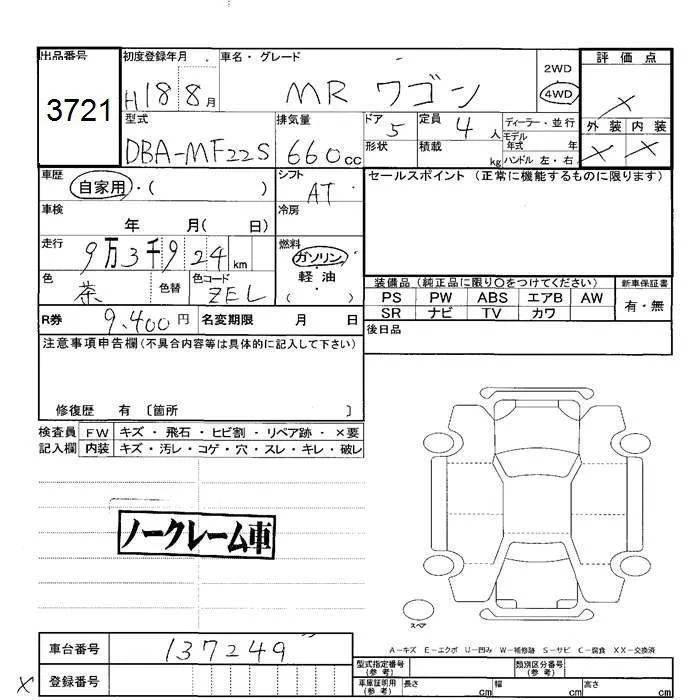 出品番号 初度登録年月 車名・グレード 2WD 4WD 評価点
3721 H18 8月 MR ワゴン ×
型式 排気量 ドア 定員 ディーラー・並行 外装 内装
DBA-MF22S 660cc 5 4人 モデル年式 年 × ×
形状 積載 kg ハンドル 左・右
車歴 シフト セールスポイント (正常に機能するものに限ります)
自家用・( ) AT
車検 冷房
年 月( 日)
走行 燃料
9万3千924km ガソリン
色 色替 色コード 軽・油
茶 ZEL ( ) 装備品(純正品に限り○をつけてください) 新車保証書
PS PW ABS エアB AW 有・無
R券 9,400円 名変期限 月 日 SR ナビ TV カワ
注意事項申告欄(不具合内容等は具体的に記入して下さい) 後日品
修復歴 有 〔箇所 〕
検査員 FW キズ・飛石・ヒビ割・リペア跡・×要
記入欄 内装 キズ・汚レ・コゲ・穴・スレ・キレ・破レ
ノークレーム車
スペア
車台番号 137249
A-キズ E-エクボ U-凹み W-補修跡 S-サビ C-腐食 XX-交換済
型式指定番号(参考) 類別区分番号(参考)
× 登録番号 車庫証明用(参考) 長さ cm 幅 cm 高さ cm